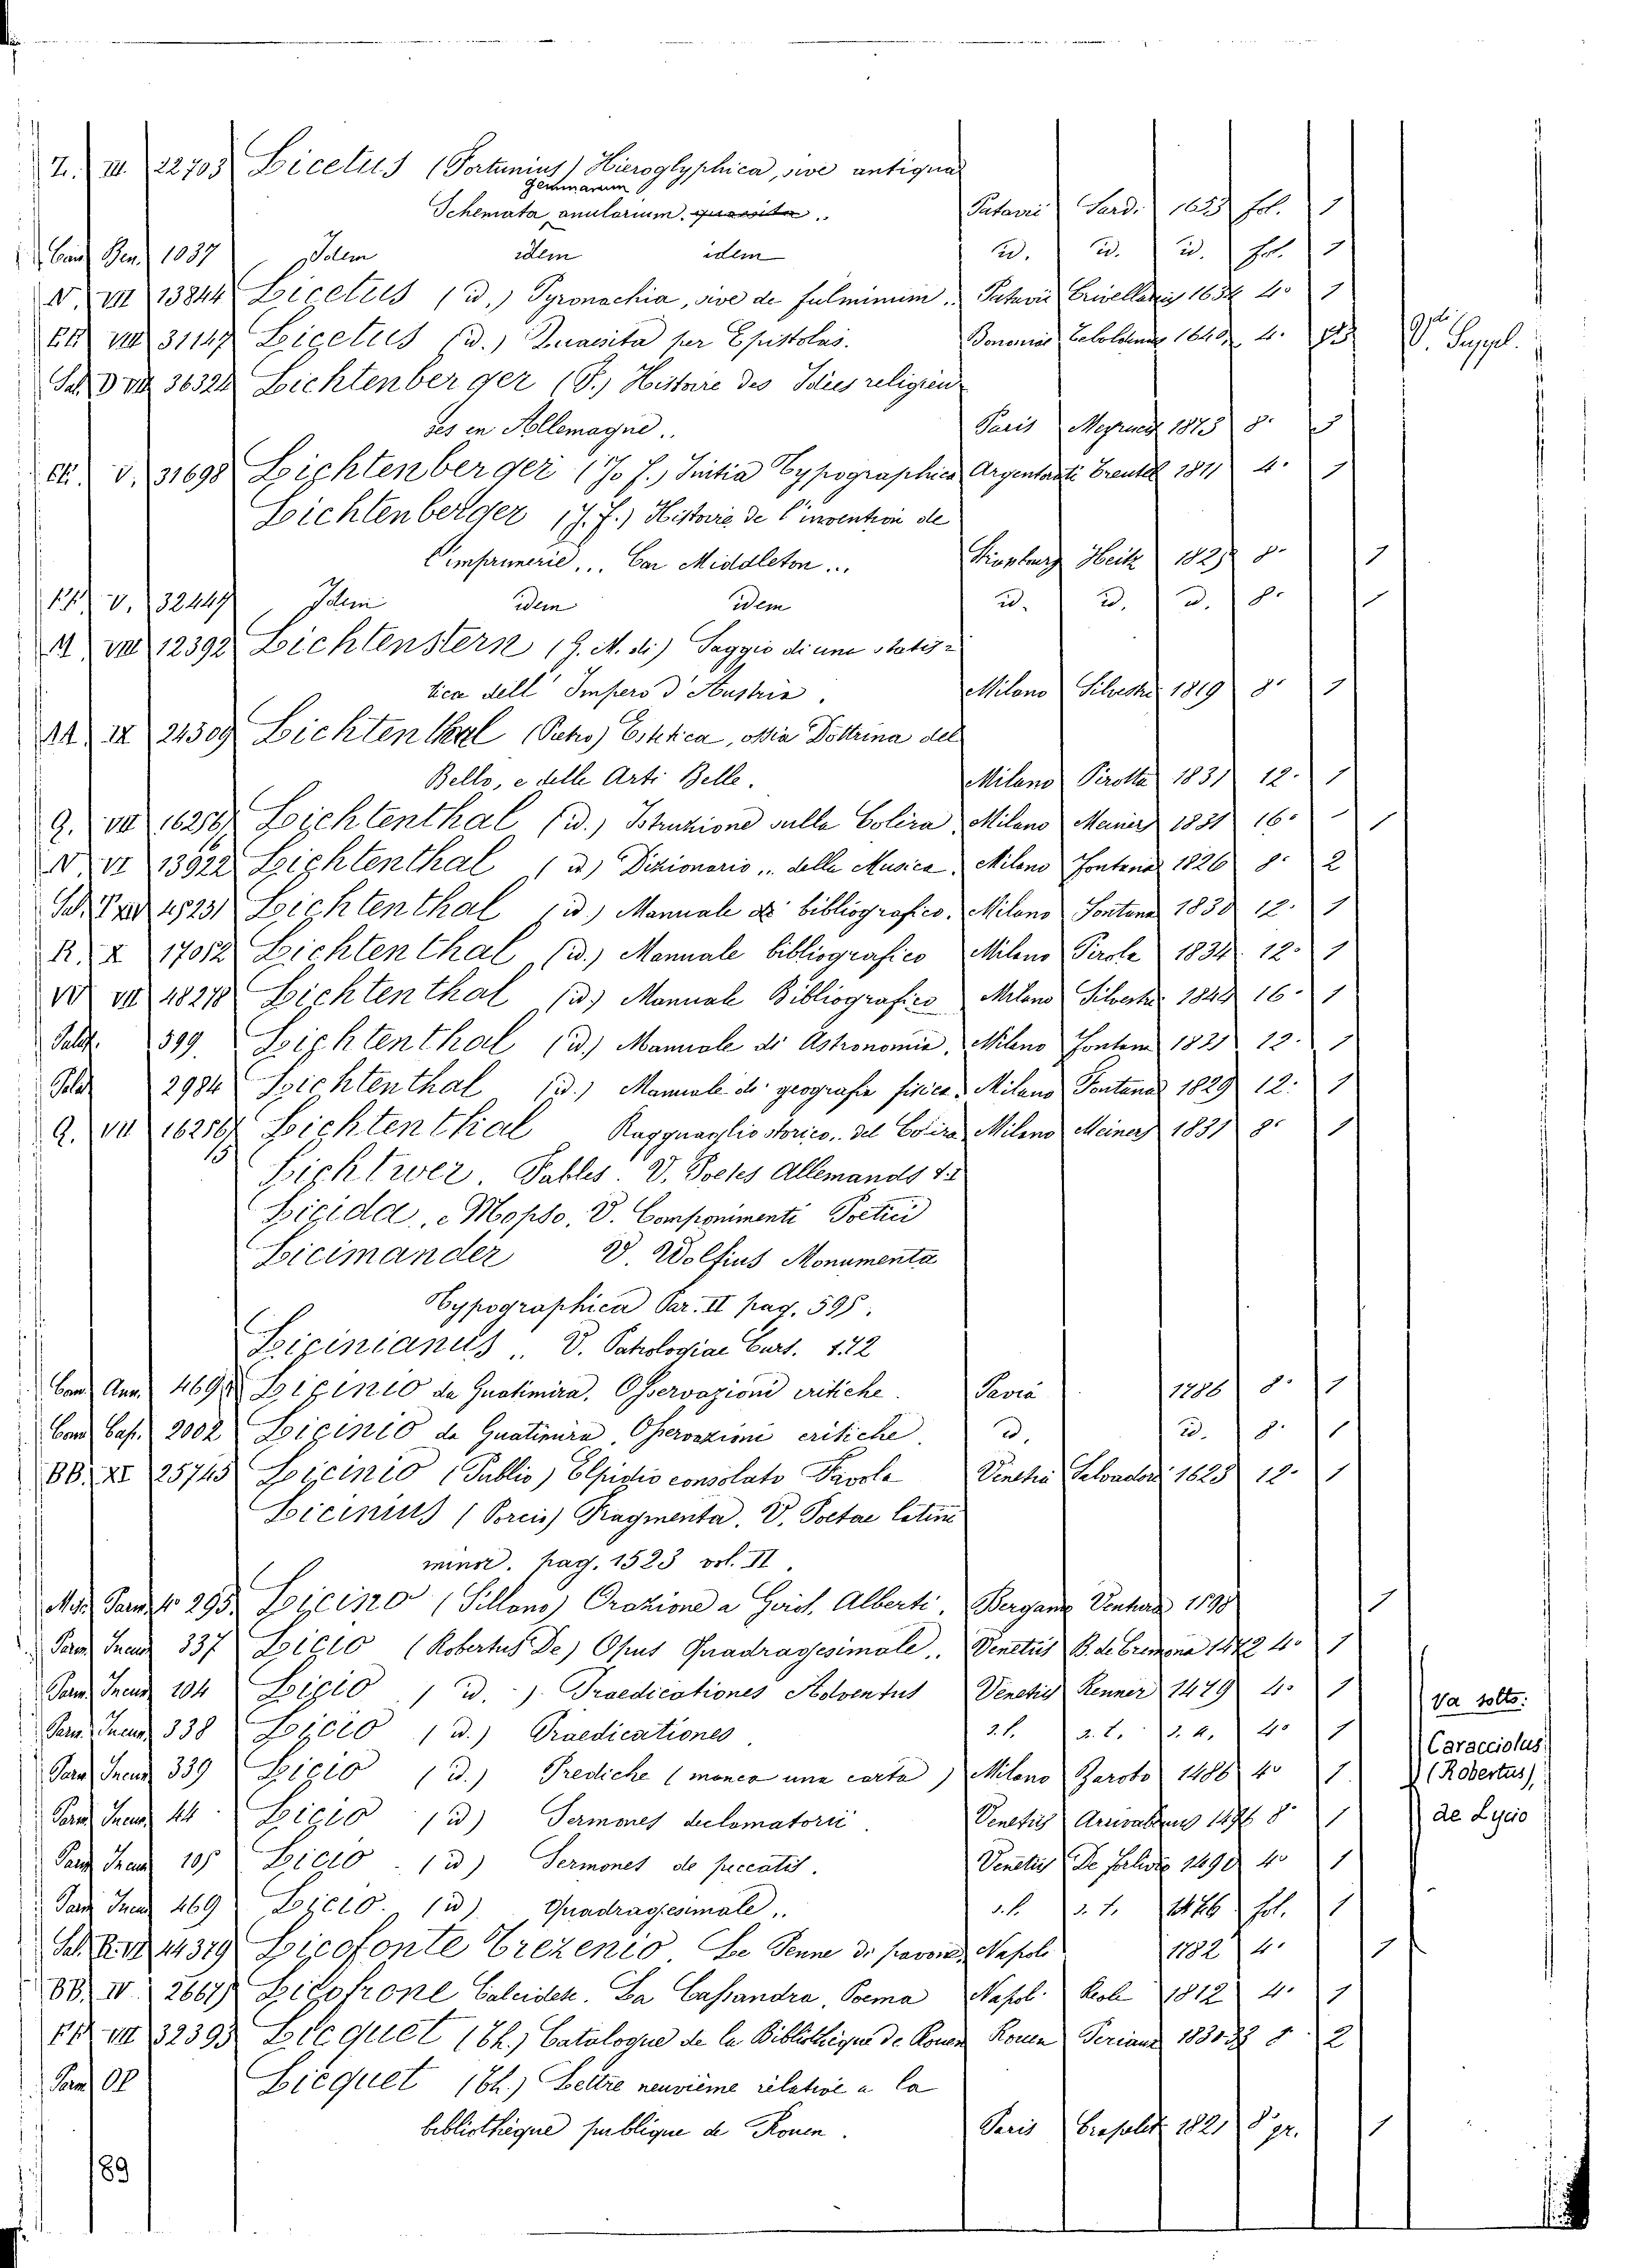 Z. III. 22703 Licetus (Fortunius) Hieroglyphica, sive antiqua
Schemata gemmarum anularium quaesita .. Patavii Sard. 1653 fol. 1
Cam Ben. 1037 Idem idem idem id. id. id. fol. 1
N. VII 13844 Licetus (id.) Pyronachia, sive de fulminum. Patavii Crivellariis 1634 4° 1
EE VIII 31147 Licetus (id.) Quaesita per Epistolas. Bononiae 1640 4.
V. Suppl.
Sal. D VII 36324 Lichtenberger (F.) Histoire des Idées religieu
ses en Allemagne .. Paris 1873 8. 3
EE. V. 31698 Lichtenberger (Jo F.) Initia Typographica Argentorati Treuttel 1811 4. 1
Lichtenberger (J. F.) Histoire de l'invention de
l'imprimerie ... Car Middleton ... Strasburg Heitz 1825 8. 1
FF. V. 32447 Idem idem idem id. id. id. 8. 1
M VIII 12392 Lichtenstern (G. M. di) Saggio di una statis-
tica dell' Impero d'Austria. Milano Silvestri 1819 8. 1
AA IX 24309 Lichtenthal (Pietro) Estetica, ossia Dottrina del
Bello, e delle Arti Belle. Milano Pirotta 1831 12. 1
Q. VII 16256/6 Lichtenthal (id.) Istruzione sulla Colera Milano Meiners 1831 16. 1
N VI 13922 Lichtenthal (id.) Dizionario .. della Musica. Milano Fontana 1826 8. 2
Sal. 45231 Lichtenthal (id.) Manuale di bibliografico. Milano Fontana 1830 12. 1
R. X 17012 Lichtenthal (id.) Manuale bibliografico Milano Pirola 1834 12. 1
VV VII 48278 Lichtenthal (id.) Manuale Bibliografico Milano Silvestri 1844 16. 1
Palat. 399. Lichtenthal (id.) Manuale di Astronomia. Milano Fontana 1821 12. 1
Palat 2984 Lichtenthal (id.) Manuale di geografia fisica. Milano Fontana 1829 12. 1
Q. VII 16256/5 Lichtenthal Ragguaglio storico .. del Colera Milano Meiners 1831 8. 1
Lichtwer. Fables. V. Poetes Allemands t. 2
Licida, e Mopso, V. Componimenti Poetici
Licimander V. Wolfius Monumenta
Typographica Par. II pag. 595.
Licinianus .. V. Patrologiae Curs. t. 72
Cam Ann. 469 Licinio da Guatimira. Osservazioni critiche. Pavia 1786 8. 1
Cam Cap. 2002 Licinio da Guatimira. Osservazioni critiche. id. id. 8. 1
BB. XI 25745 Licinio (Publio) Elpidio consolato Favola Venetia Salvadori 1625 12. 1
Licinius (Porcis) Fragmenta. V. Poetae latini
minor. pag. 1523 vol. II.
Mis. Parm. 4° 295. Licino (Sillano) Orazione a Girol. Alberti. Bergamo Ventura 1598 1
Parm. Incun 337 Licio (Robertus De) Opus Quadragesimale .. Venetiis B. de Cremona 1472 4. 1
Parm. Incun 104 Licio (id.) Praedicationes Adventus Venetiis Renner 1479 4. 1
Parm. Incun. 338 Licio (id.) Praedicationes. s. l. s. t. s. a. 4. 1
Parm. Incun 339 Licio (id.) Prediche (manca una carta) Milano Zaroto 1486 4. 1
Parm Incun 44 Licio (id) Sermones declamatorii. Venetiis Arrivabenus 1496 8. 1
Parm Incun 105 Licio. (id) Sermones de peccatis. Venetiis De Forlivio 1490 4. 1
Parm Incun 469 Licio. (id) Quadragesimale .. s. l. s. t. 1476 fol. 1
Va sotto:
Caracciolus
(Robertus),
de Lycio
Sal. 44379 Licofonte Trezenio. Le Penne di pavone. Napoli 1782 4. 1
BB. IV 2667 Licofrone Calcidese. La Cassandra, Poema Napol. 1812 4. 1
FF VII 32393 Licquet (Th.) Catalogue de la Bibliothèque de Rouen Rouen Periaux 1830.33 8. 2
Parm OP Licquet (Th.) Lettre neuvième relative a la
bibliothèque publique de Rouen. Paris Crapelet 1821 8. gr. 1
189